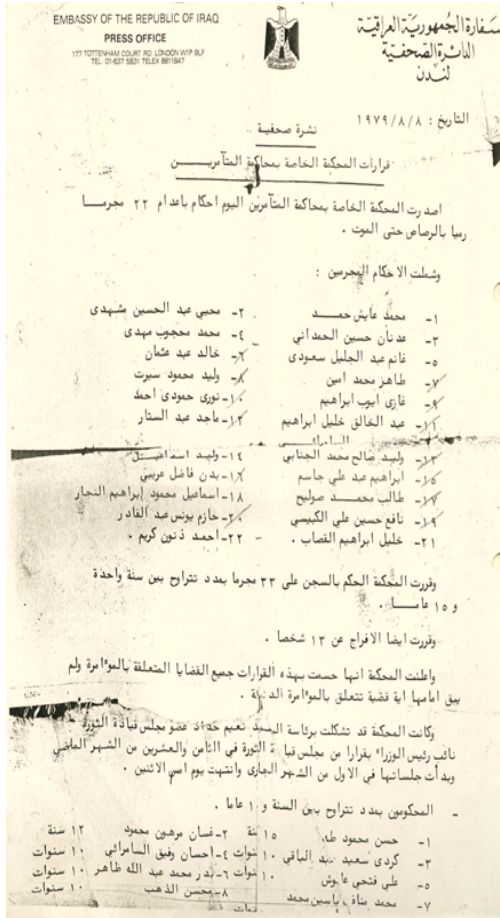 EMBASSY OF THE REPUBLIC OF IRAQ
PRESS OFFICE
177 TOTTENHAM COURT RD. LONDON W1P 9LF
TEL: 01-637 5831 TELEX 8811847
سفارة الجمهورية العراقية
الدائرة الصحفية
لندن
التاريخ : ١٩٧٩/٨/٨
نشرة صحفية
قرارات المحكمة الخاصة بمحاكمة المتآمرين
اصدرت المحكمة الخاصة بمحاكمة المتآمرين اليوم احكام باعدام ٢٢ مجرما
رميا بالرصاص حتى الموت .
وشملت الاحكام المجرمين :
١- محمد عايش حمد ٢- محيي عبد الحسين مشهدى
٣- عدنان حسين الحمداني ٤- محمد محجوب مهدى
٥- غانم عبد الجليل سعودى ٦- خالد عبد عثمان
٧- طاهر محمد امين ٨- وليد محمود سيرت
٩- غازى ايوب ابراهيم ١٠- نورى حمودى احمد
١١- عبد الخالق خليل ابراهيم السامرائي ١٢- ماجد عبد الستار
١٣- وليد صالح محمد الجنابي ١٤- وليد اسماعيل
١٥- ابراهيم عبد علي جاسم ١٦- بدن فاضل عريبي
١٧- طالب محمد صويلح ١٨- اسماعيل محمود إبراهيم النجار
١٩- نافع حسين علي الكبيسي ٢٠- حازم يونس عبد القادر
٢١- خليل ابراهيم القصاب . ٢٢- احمد ذنون كريم .
وقررت المحكمة الحكم بالسجن على ٣٣ مجرما بمدد تتراوح بين سنة واحدة
و ١٥ عاما .
وقررت ايضا الافراج عن ١٣ شخصا .
واعلنت المحكمة انها حسمت بهذه القرارات جميع القضايا المتعلقة بالموءامرة ولم
يبق امامها اية قضية تتعلق بالموءامرة
وكانت المحكمة قد تشكلت برئاسة السيد نعيم حداد عضو مجلس قيادة الثورة
نائب رئيس الوزراء بقرارا من مجلس قيادة الثورة في الثامن والعشرين من الشهر الماضي
وبدأت جلساتها في الاول من الشهر الجارى وانتهت يوم امس الاثنين .
- المحكومون بمدد تتراوح بين السنة و ١٠ عاما .
١- حسن محمود طه ١٥ سنة ٢- غسان مرهون محمود ١٢ سنة
٣- كردى سعيد عبد الباقي ١٠ سنوات ٤- احسان وفيق السامرائي ١٠ سنوات
٥- علي فتحي ١٠ سنوات ٦- بدر محمد عبد الله طاهر ١٠ سنوات
٧- محمد مناف ياسين محمد ٨- محسن الذهب ١٠ سنوات